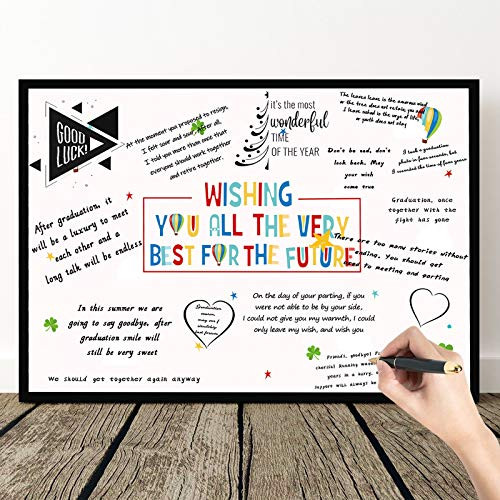 GOOD
LUCK!
At the moment you proposed to resign,
I felt sad and sad. After all,
I told you more than once that
everyone should work together
and retire together.
it's the most
wonderful
TIME
OF THE YEAR
The leaves leave is the enormous wind
or the tree does not retain, you and
I leave naked is the verge of life
or youth does not stay
Don't be sad, don't
look back. May
your wish
come true
I took a graduation
photo in four seconds, but
I recorded the time of four years
Graduation, once
together With the
fight has gone
After graduation, it
will be a luxury to meet
each other and a
long talk will be endless
WISHING
YOU ALL THE VERY
BEST FOR THE FUTURE
There are too many stories without
ending. You should get
used to meeting and parting
In this summer we are
going to say goodbye, after
graduation smile will
still be very sweet
Graduation
means
may our
friendship
last forever
On the day of your parting, if you
were not able to be by your side,
I could not give you my warmth, I could
only leave my wish, and wish you
Friends, goodbye!
cheerful Running
years in a hurry.
Support with always be
We should get together again anyway